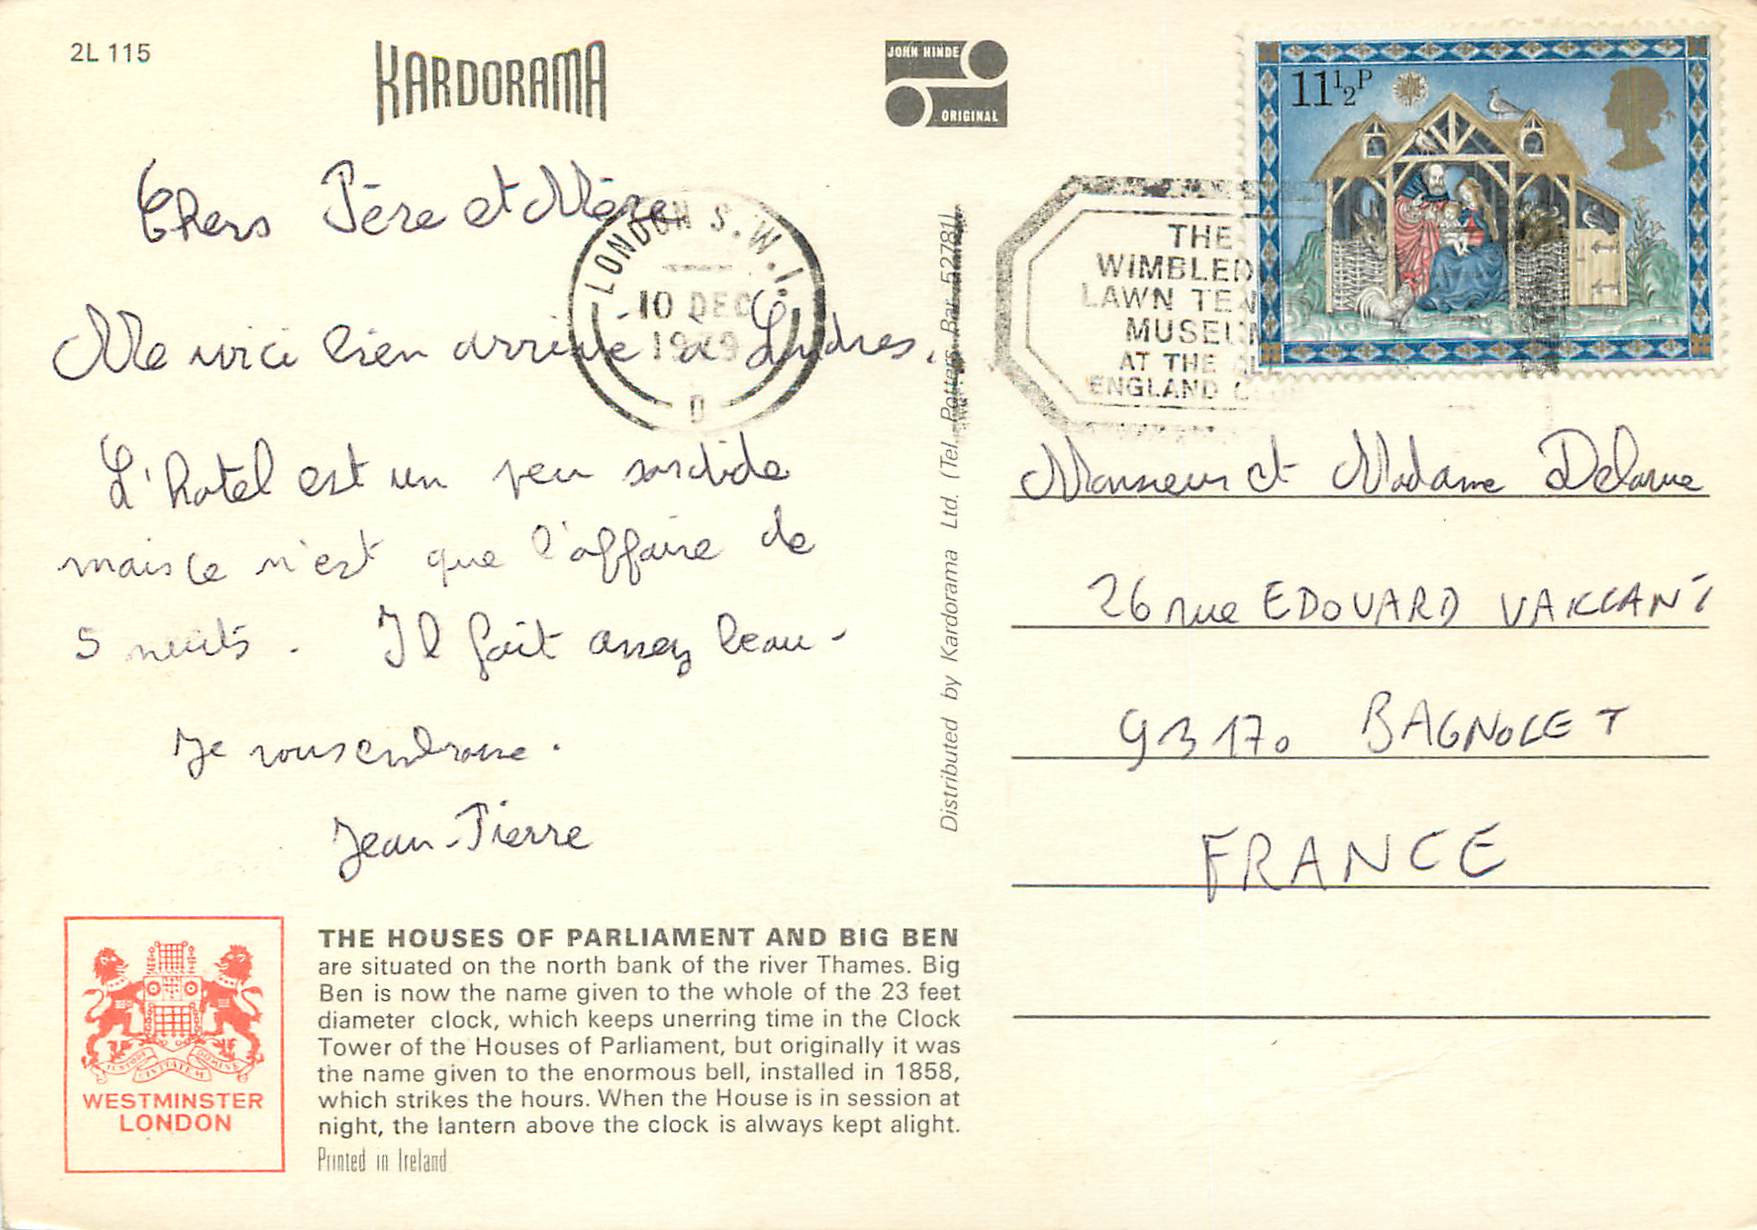 2L 115
KARDORAMA
JOHN HINDE
ORIGINAL
11½P
Chers Père et Mère
LONDON S.W.1.
10 DEC
1979
D
THE
WIMBLED
LAWN TEN
MUSEUM
AT THE
ENGLAND
Me voici bien arrivé à Londres.
L'hotel est un peu sordide
mais ce n'est que l'affaire de
5 nuits. Il fait assez beau -
Je vous embrasse.
Jean-Pierre
Distributed by Kardorama Ltd. (Tel. Potters Bar 52781)
Monsieur et Madame Delarue
26 rue EDOUARD VAILLANT
93170 BAGNOLET
FRANCE
WESTMINSTER
LONDON
THE HOUSES OF PARLIAMENT AND BIG BEN
are situated on the north bank of the river Thames. Big
Ben is now the name given to the whole of the 23 feet
diameter clock, which keeps unerring time in the Clock
Tower of the Houses of Parliament, but originally it was
the name given to the enormous bell, installed in 1858,
which strikes the hours. When the House is in session at
night, the lantern above the clock is always kept alight.
Printed in Ireland